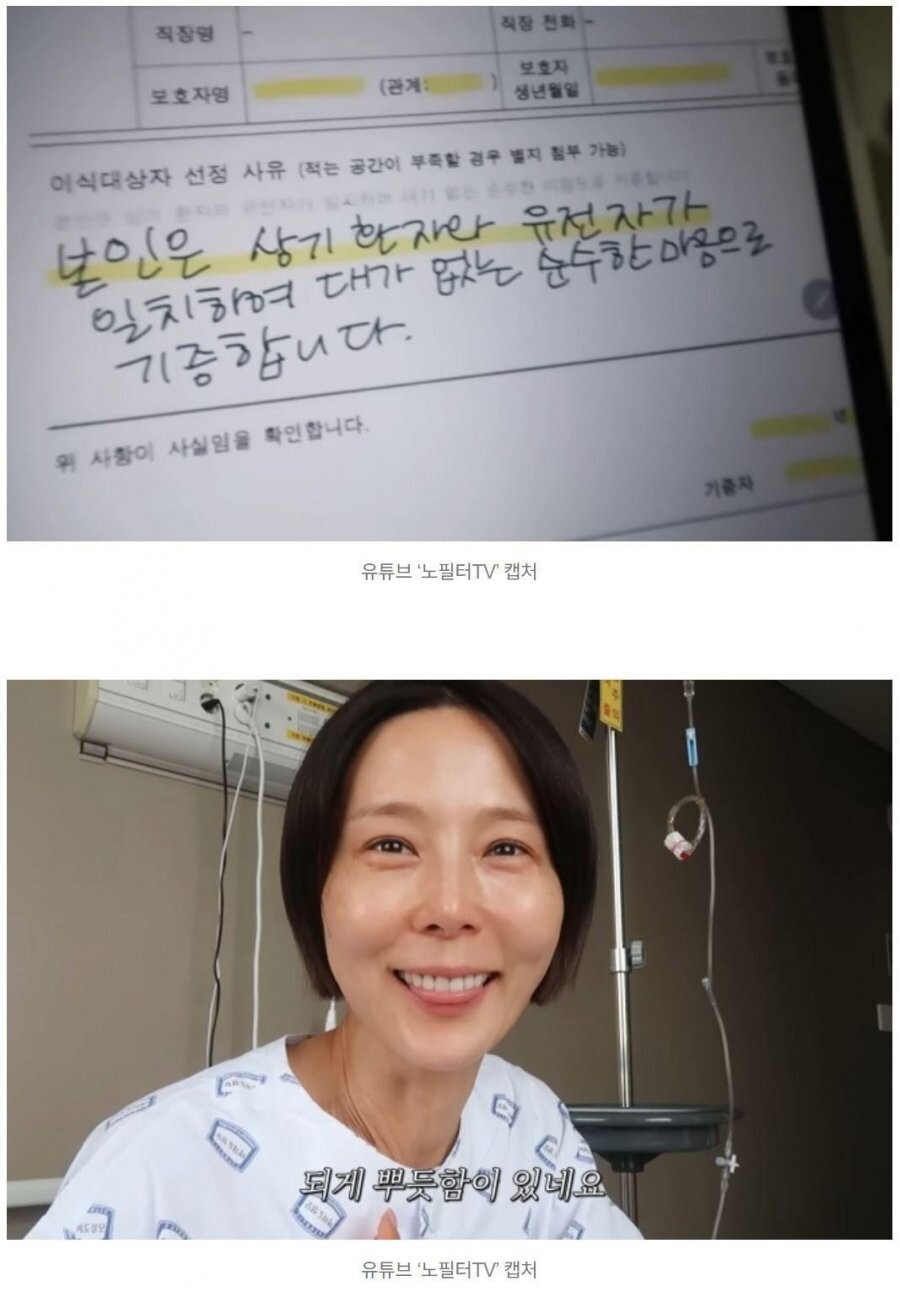 직장명 –
직장 전화 –
보호자명 (관계: )
보호자
생년월일
이식대상자 선정 사유 (적는 공간이 부족할 경우 별지 첨부 가능)
본인은 상기 환자와 유전자가
일치하며 대가 없는 순수한 마음으로
기증합니다.
위 사항이 사실임을 확인합니다.
년
기증자
유튜브 ‘노필터TV’ 캡처
되게 뿌듯함이 있네요
유튜브 ‘노필터TV’ 캡처